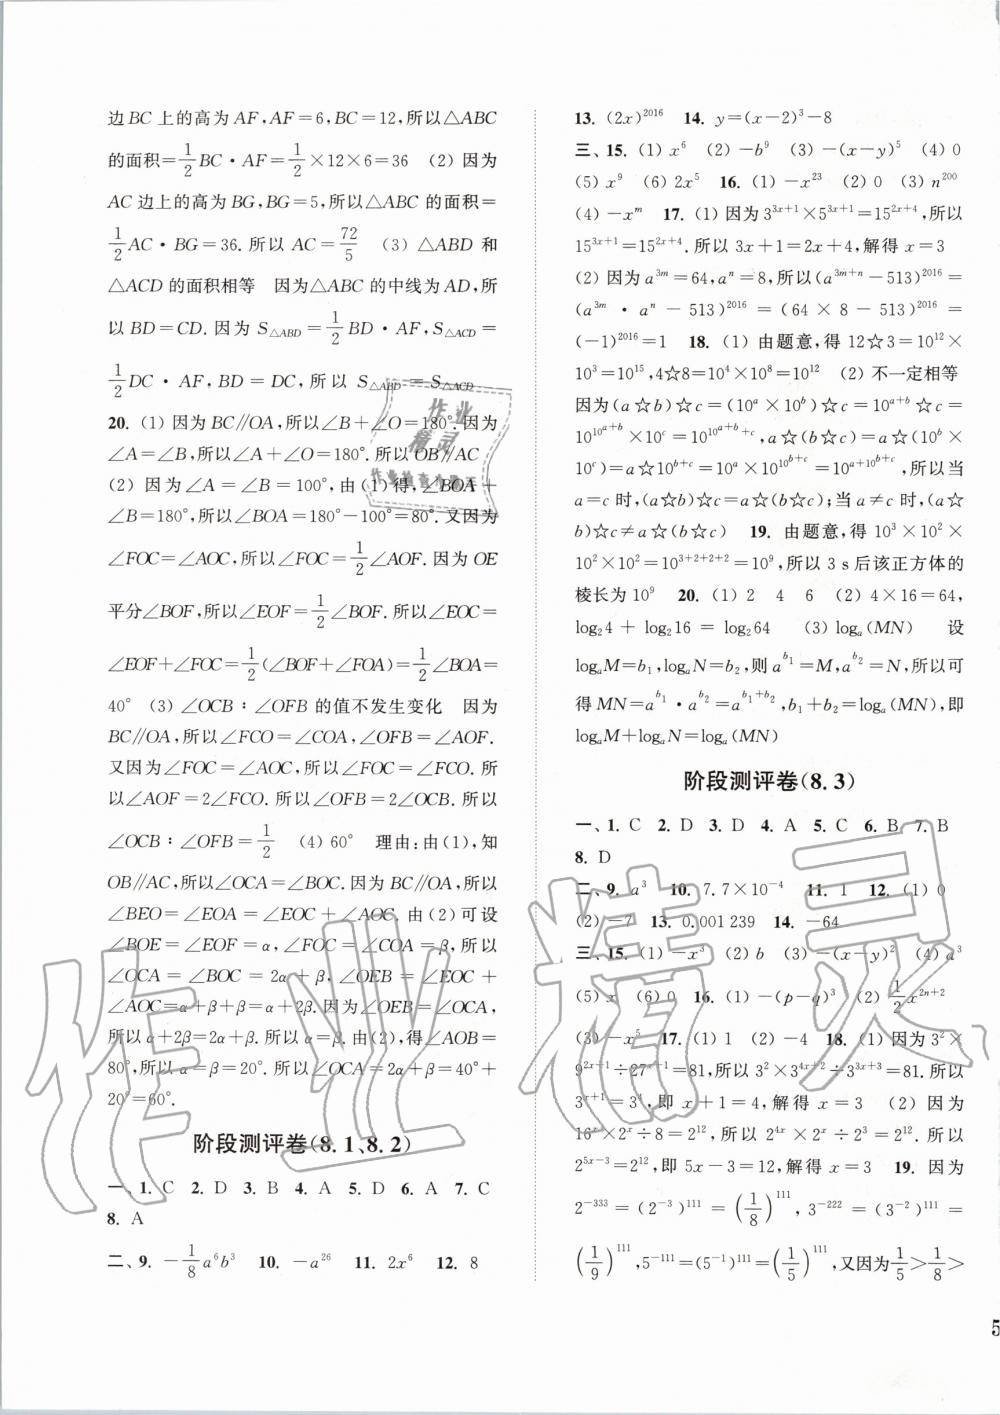 边BC上的高为AF,AF=6,BC=12,所以△ABC
的面积=1/2BC·AF=1/2×12×6=36 (2) 因为
AC边上的高为BG,BG=5,所以△ABC的面积=
1/2AC·BG=36.所以AC=72/5 (3) △ABD和
△ACD的面积相等 因为△ABC的中线为AD,所
以BD=CD.因为S△ABD=1/2BD·AF,S△ACD=
1/2DC·AF,BD=DC,所以S△ABD=S△ACD
20. (1) 因为BC∥OA,所以∠B+∠O=180°.因为
∠A=∠B,所以∠A+∠O=180°.所以OB∥AC
(2) 因为∠A=∠B=100°,由(1)得,∠BOA+
∠B=180°,所以∠BOA=180°-100°=80°.又因为
∠FOC=∠AOC,所以∠FOC=1/2∠AOF.因为OE
平分∠BOF,所以∠EOF=1/2∠BOF.所以∠EOC=
∠EOF+∠FOC=1/2(∠BOF+∠FOA)=1/2∠BOA=
40° (3) ∠OCB∶∠OFB的值不发生变化 因为
BC∥OA,所以∠FCO=∠COA,∠OFB=∠AOF.
又因为∠FOC=∠AOC,所以∠FOC=∠FCO.所
以∠AOF=2∠FCO.所以∠OFB=2∠OCB.所以
∠OCB∶∠OFB=1/2 (4) 60° 理由:由(1),知
OB∥AC,所以∠OCA=∠BOC.因为BC∥OA,所以
∠BEO=∠EOA=∠EOC+∠AOC.由(2)可设
∠BOE=∠EOF=α,∠FOC=∠COA=β,所以
∠OCA=∠BOC=2α+β,∠OEB=∠EOC+
∠AOC=α+β+β=α+2β.因为∠OEB=∠OCA,
所以α+2β=2α+β.所以α=β.由(2),得∠AOB=
80°,所以α=β=20°.所以∠OCA=2α+β=40°+
20°=60°.
阶段测评卷(8.1、8.2)
一、1. C 2. D 3. B 4. A 5. D 6. A 7. C
8. A
二、9. -1/8a⁶b³ 10. -a²⁶ 11. 2x⁶ 12. 8
13. (2x)²⁰¹⁶ 14. y=(x-2)³-8
三、15. (1) x⁶ (2) -b⁹ (3) -(x-y)⁵ (4) 0
(5) x⁹ (6) 2x⁵ 16. (1) -x²³ (2) 0 (3) n²⁰⁰
(4) -x^m 17. (1) 因为3^(3x+1)×5^(3x+1)=15^(2x+4),所以
15^(3x+1)=15^(2x+4).所以3x+1=2x+4,解得x=3
(2) 因为a^(3m)=64,a^n=8,所以(a^(3m+n)-513)²⁰¹⁶=
(a^(3m)·a^n-513)²⁰¹⁶=(64×8-513)²⁰¹⁶=
(-1)²⁰¹⁶=1 18. (1) 由题意,得12☆3=10¹²×
10³=10¹⁵,4☆8=10⁴×10⁸=10¹² (2) 不一定相等
因为(a☆b)☆c=(10^a×10^b)☆c=10^(a+b)☆c=
10^(10^(a+b))×10^c=10^(10^(a+b)+c),a☆(b☆c)=a☆(10^b×
10^c)=a☆10^(b+c)=10^a×10^(10^(b+c))=10^(a+10^(b+c)),所以当
a=c时,(a☆b)☆c=a☆(b☆c);当a≠c时,(a☆
b)☆c≠a☆(b☆c) 19. 由题意,得10³×10²×
10²×10²=10^(3+2+2+2)=10⁹,所以3 s后该正方体的
棱长为10⁹ 20. (1) 2 4 6 (2) 4×16=64,
log₂4+log₂16=log₂64 (3) logₐ(MN) 设
logₐM=b₁,logₐN=b₂,则a^(b₁)=M,a^(b₂)=N,所以可
得MN=a^(b₁)·a^(b₂)=a^(b₁+b₂),b₁+b₂=logₐ(MN),即
logₐM+logₐN=logₐ(MN)
阶段测评卷(8.3)
一、1. C 2. D 3. D 4. A 5. C 6. B 7. B
8. D
二、9. a³ 10. 7.7×10⁻⁴ 11. 1 12. (1) 0
(2) -7 13. 0.001 239 14. -64
三、15. (1) -x³ (2) b (3) -(x-y)² (4) a³
(5) x (6) 0 16. (1) -(p-q)³ (2) 1/2x^(2n+2)
(3) -x⁵ 17. (1) 1 (2) -4 18. (1) 因为3²×
9^(2x+1)÷27^(x+1)=81,所以3²×3^(4x+2)÷3^(3x+3)=81.所以
3^(x+1)=3⁴,即x+1=4,解得x=3 (2) 因为
16^x×2^x÷8=2¹²,所以2^(4x)×2^x÷2³=2¹².所以
2^(5x-3)=2¹²,即5x-3=12,解得x=3 19. 因为
2⁻³³³=(2⁻³)¹¹¹=(1/8)¹¹¹,3⁻²²²=(3⁻²)¹¹¹=
(1/9)¹¹¹,5⁻¹¹¹=(5⁻¹)¹¹¹=(1/5)¹¹¹,又因为1/5>1/8>
5
作业精灵
作业
精灵